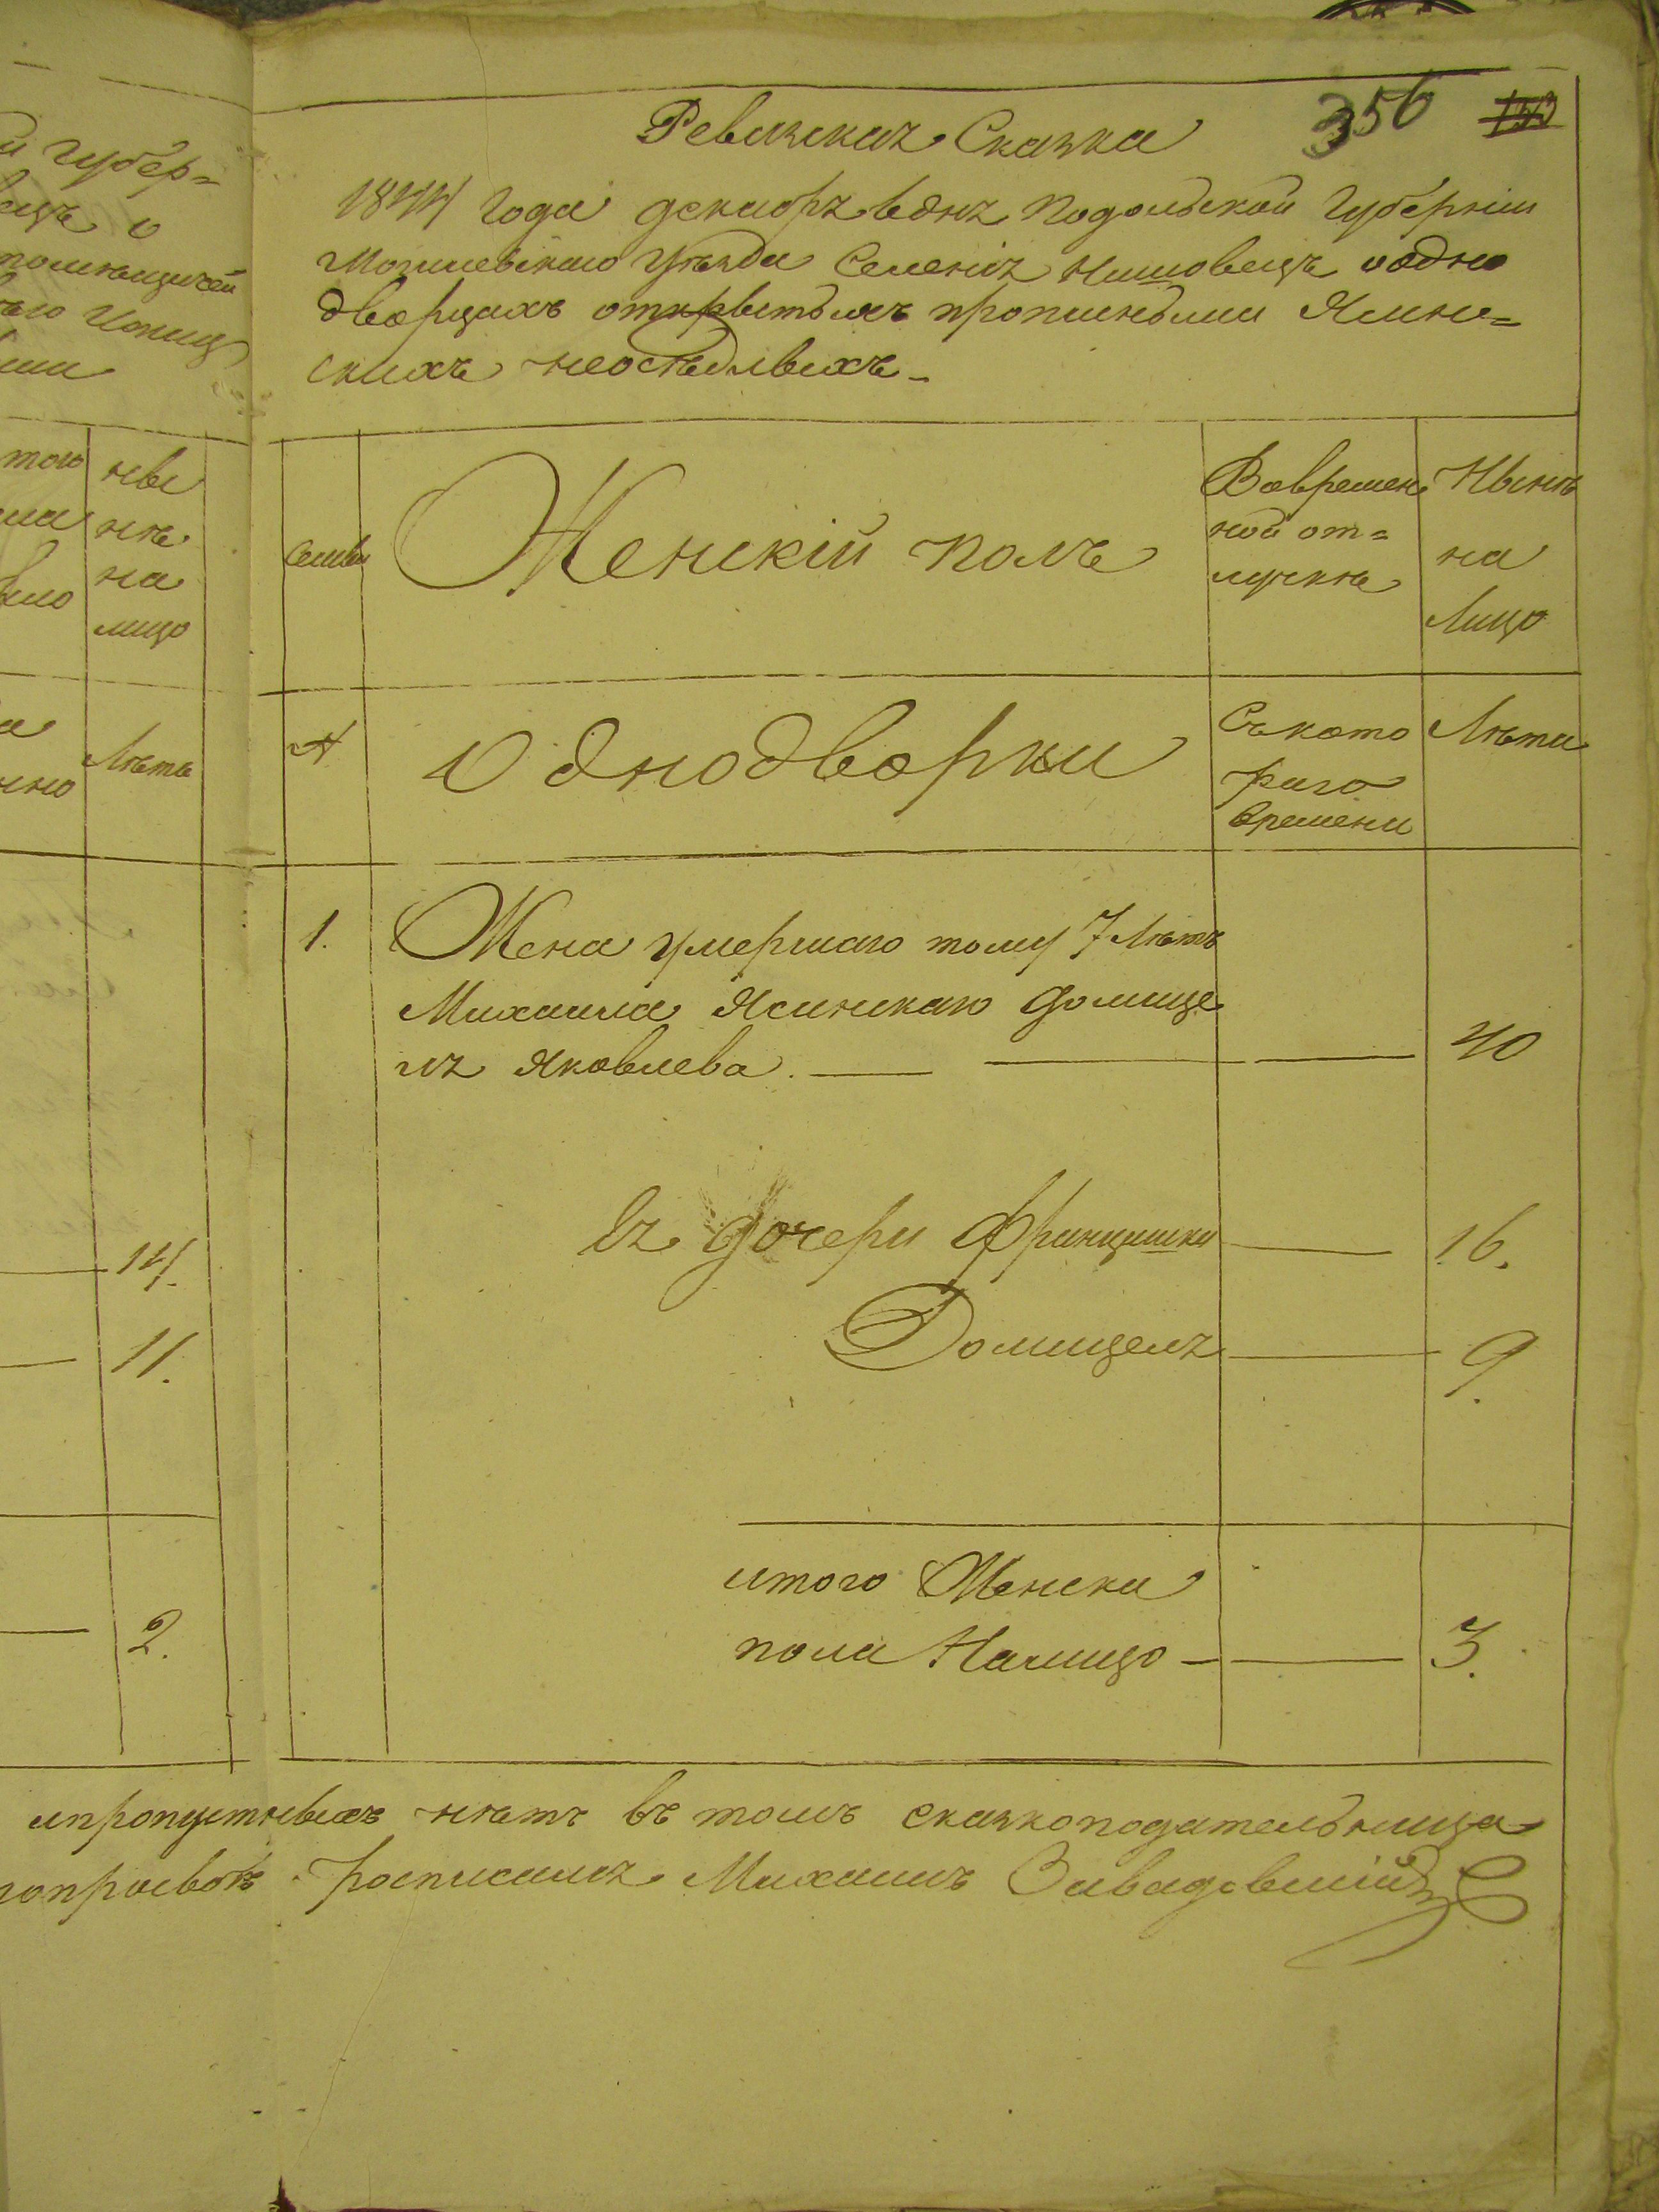 Ревизская Сказка 356 153
1844 года декабря в дня Подольской Губерніи
Могилевскаго Уѣзда Селенія Нишовецъ о одно
дворцахъ открытыхъ прописными Ясин=
скихъ неосѣдлыхъ.
семьи
Женскій полъ
Вовремен
ной от=
лучкѣ
Нынѣ
на
Лицо
№
Однодворки
Съ кото
раго
времени
Лѣта
1. Жена умершаго тому 7 Лѣтъ
Михаила Ясинскаго Домице
ля Яковлева. 40
Ея дочери Францишка 16.
Домицеля 9.
итого Женска
пола Налицо 3.
ипропустныхъ нѣтъ въ томъ сказкоподательница
Росписался Михаилъ Завадовскій
й губер=
того
ны
нѣ
на
лицо
Лѣтъ
14.
11.
2.